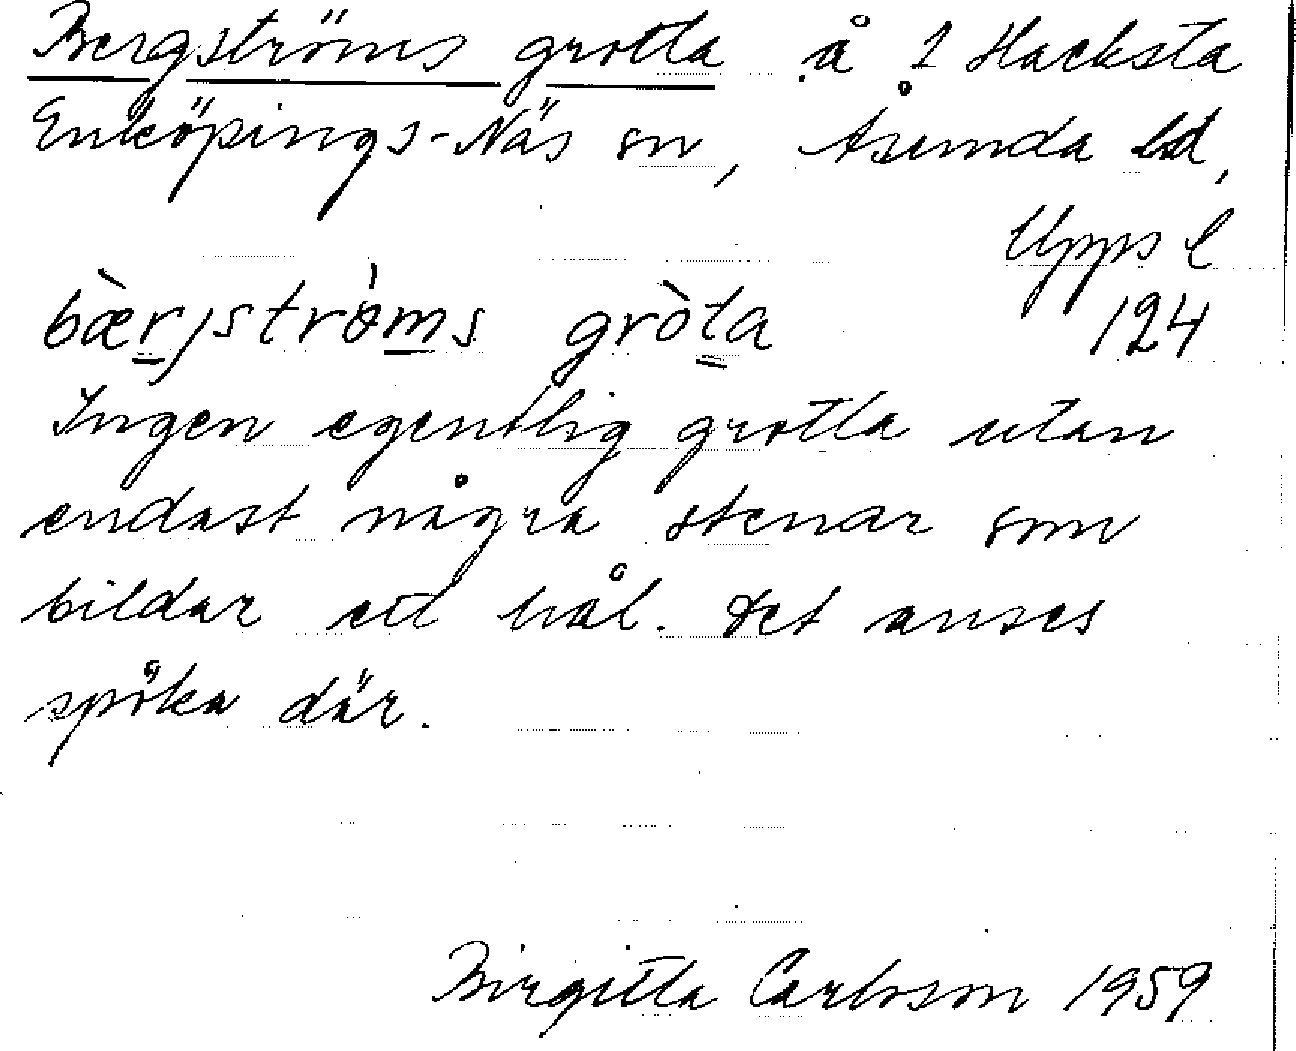 Bergströms grotta å 1 Hacksta
Enköpings-Näs sn, Åsunda hd,
Upps l
124
bæ̀rjströ̀ms grò̀ta
Ingen egentlig grotta utan
endast några stenar som
bildar ett hål. Det anses
spöka där.
Birgitta Carlsson 1959